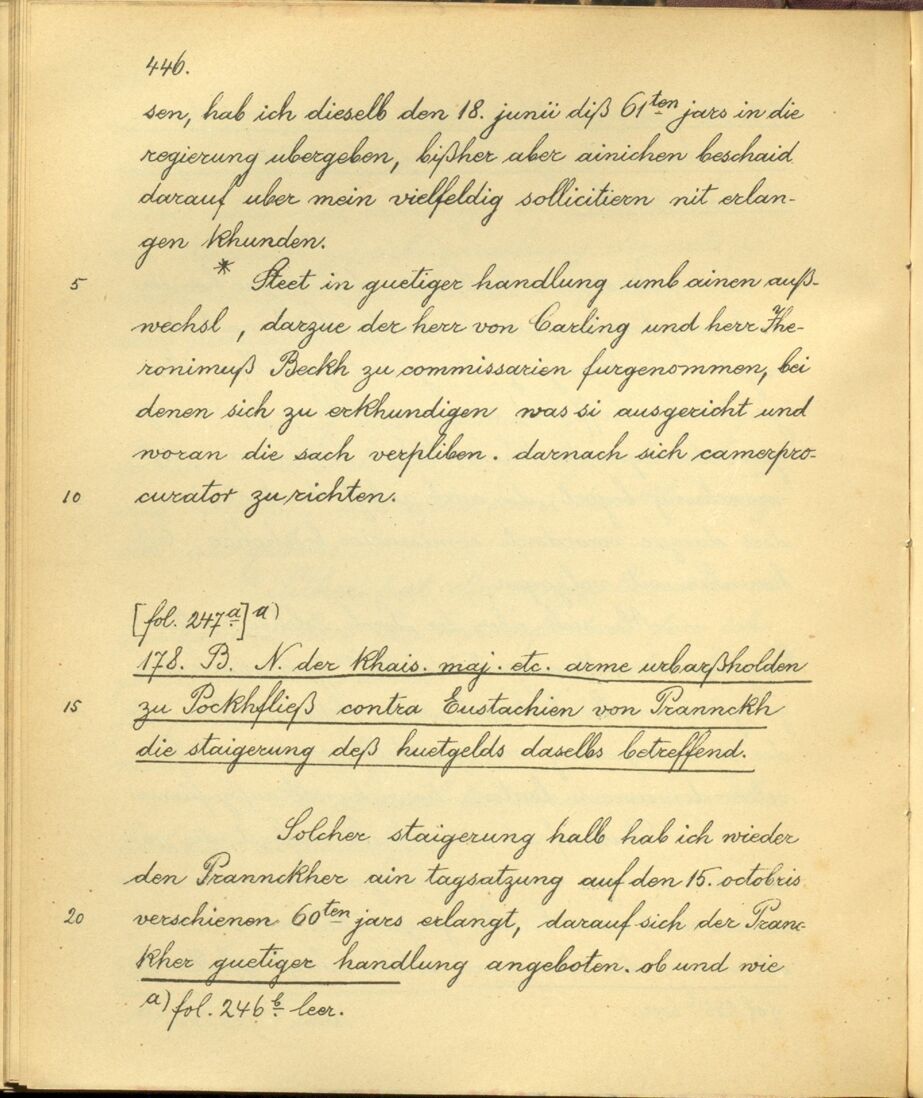 446.
sen, hab ich dieselb den 18. junii diß 61ten jars in die
regierung ubergeben, bißher aber ainichen beschaid
darauf uber mein vielfeldig sollicitiern nit erlan-
gen khunden.
5 * Steet in guetiger handlung umb ainen auß-
wechsl, darzue der herr von Carling und herr Jhe-
ronimuß Beckh zu commissarien furgenommen, bei
denen sich zu erkhundigen was si ausgericht und
woran die sach verpliben. darnach sich camerpro-
10 curator zu richten.
[fol. 247a] a)
178. B. N. der khais. maj. etc. arme urbarßholden
15 zu Pockhfließ contra Eustachien von Prannckh
die staigerung deß huetgelds daselbs betreffend.
Solcher staigerung halb hab ich wieder
den Prannckher ain tagsatzung auf den 15. octobris
20 verschienen 60ten jars erlangt, darauf sich der Pranc-
kher guetiger handlung angeboten. ob und wie
a) fol. 246b leer.